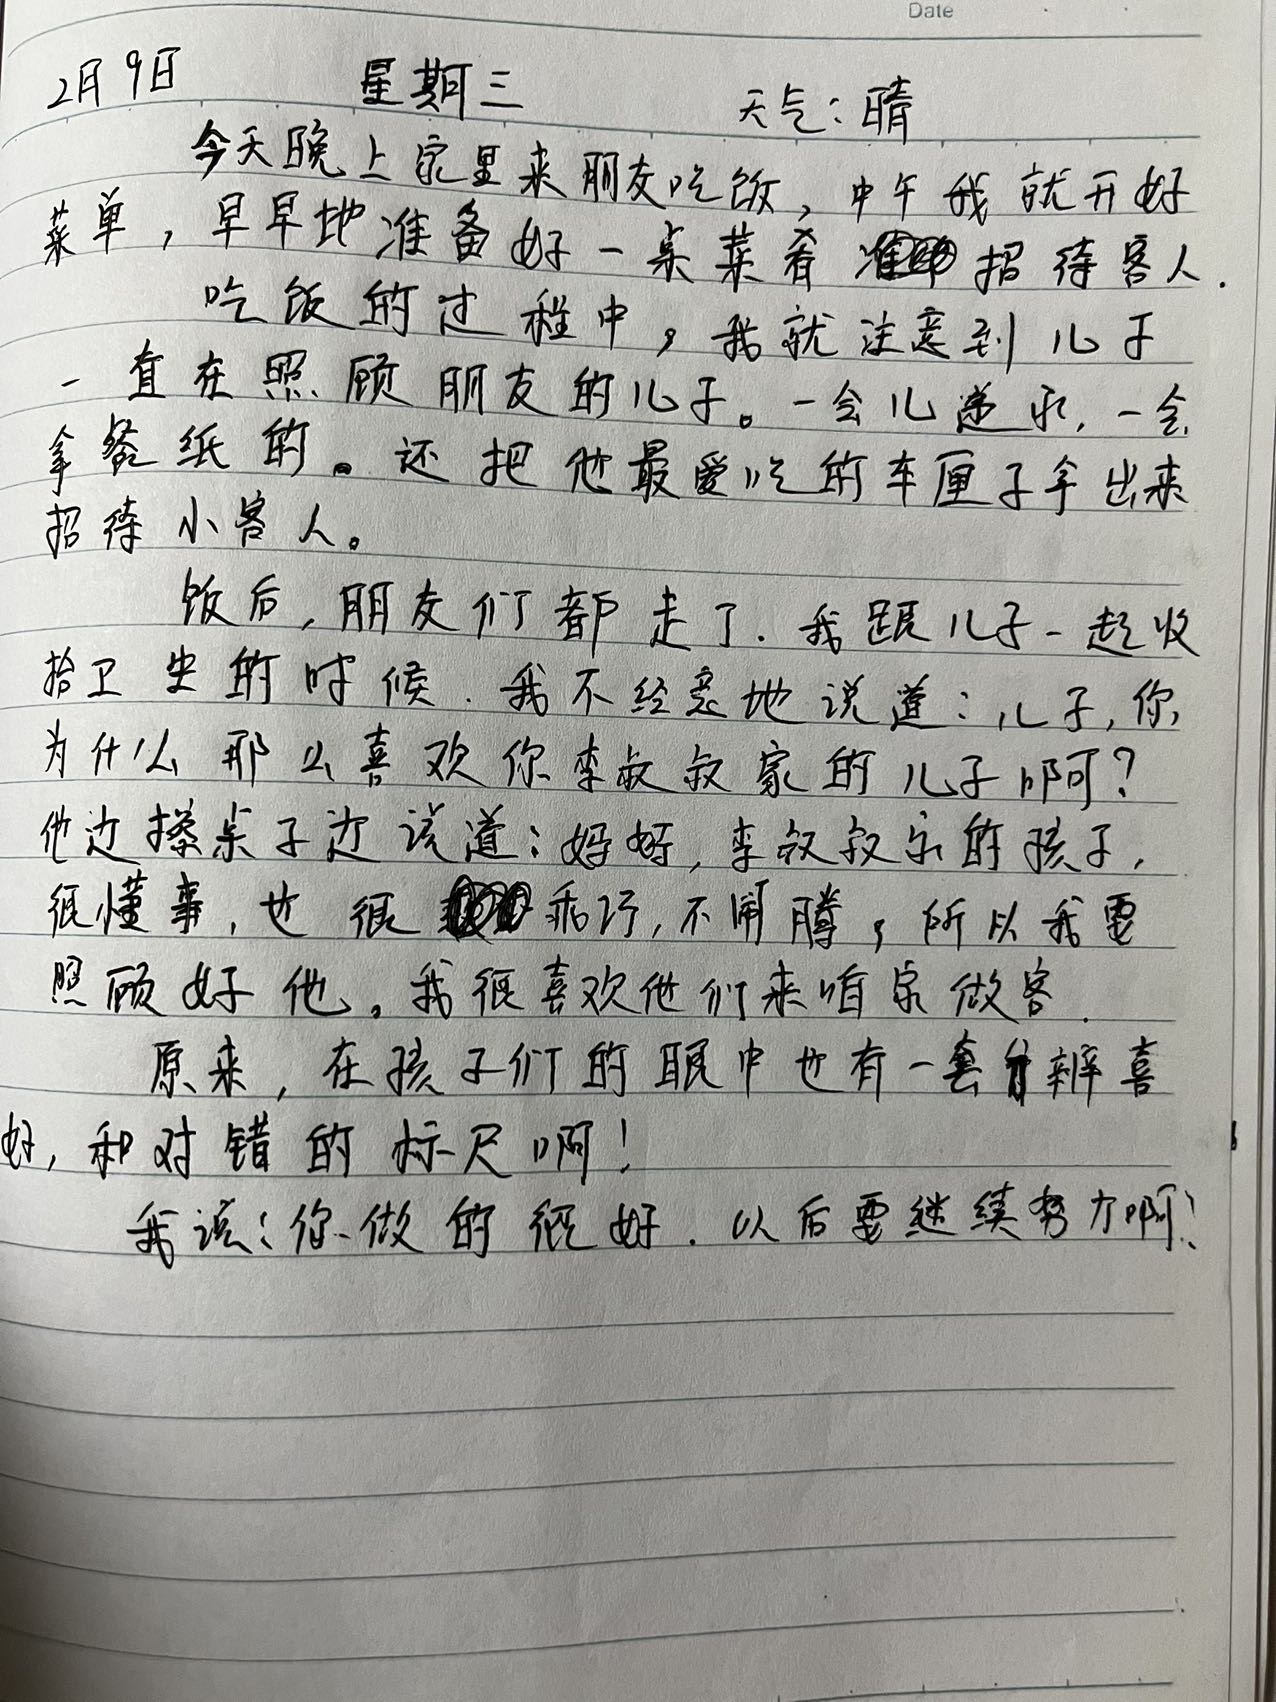 Date
2月9日 星期三 天气:晴
今天晚上家里来朋友吃饭,中午我就开好
菜单,早早地准备好一桌菜肴招待客人.
吃饭的过程中,我就注意到儿子
一直在照顾朋友的儿子。一会儿递水,一会
拿餐纸的。还把他最爱吃的车厘子拿出来
招待小客人。
饭后,朋友们都走了.我跟儿子一起收
拾卫生的时候.我不经意地说道:儿子,你
为什么那么喜欢你李叔叔家的儿子啊?
他边擦桌子边说道:妈妈,李叔叔家的孩子,
很懂事,也很乖巧,不闹腾,所以我要
照顾好他。我很喜欢他们来咱家做客.
原来,在孩子们的眼中也有一套辨喜
好,和对错的标尺啊!
我说:你做的很好.以后要继续努力啊!